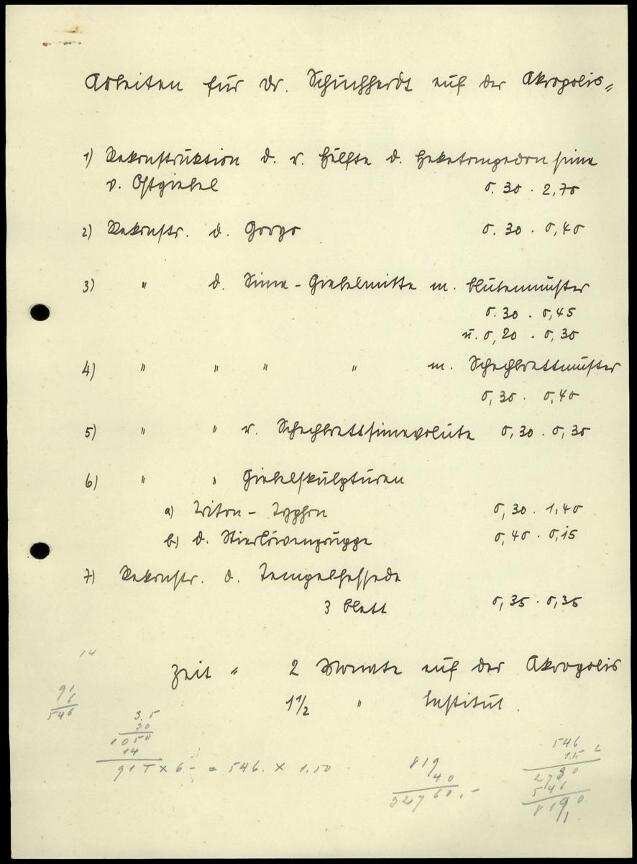 Arbeiten für Dr. Schuchhardt auf der Akropolis.
1) Rekonstruktion d. r. Hälfte d. Hekatompedon sima
v. Ostgiebel 0.30 . 2,70
2) Rekonstr. d. Gorgo 0.30 . 0,40
3) " d. Sima-Giebelmitte m. Blütenmuster
0.30 . 0,45
u. 0,20 . 0,30
4) " " " " m. Schachbrettmuster
0,30 . 0,40
5) " " r. Schachbrettsimavolute 0,30 . 0,30
6) " " Giebelskulpturen
a) Triton-Typhon 0,30 . 1,40
b) d. Stierlöwengruppe 0,40 . 0,15
7) Rekonstr. d. Tempelfassade
3 Blatt 0,35 . 0,35
Zeit " 2 Monate auf der Akropolis
1 1/2 " Institut.
14
91
546
3,5
30
1050
14
915 x 6 - = 546. x 1.50
819
40
32760.-
546
15
2730
546
8190